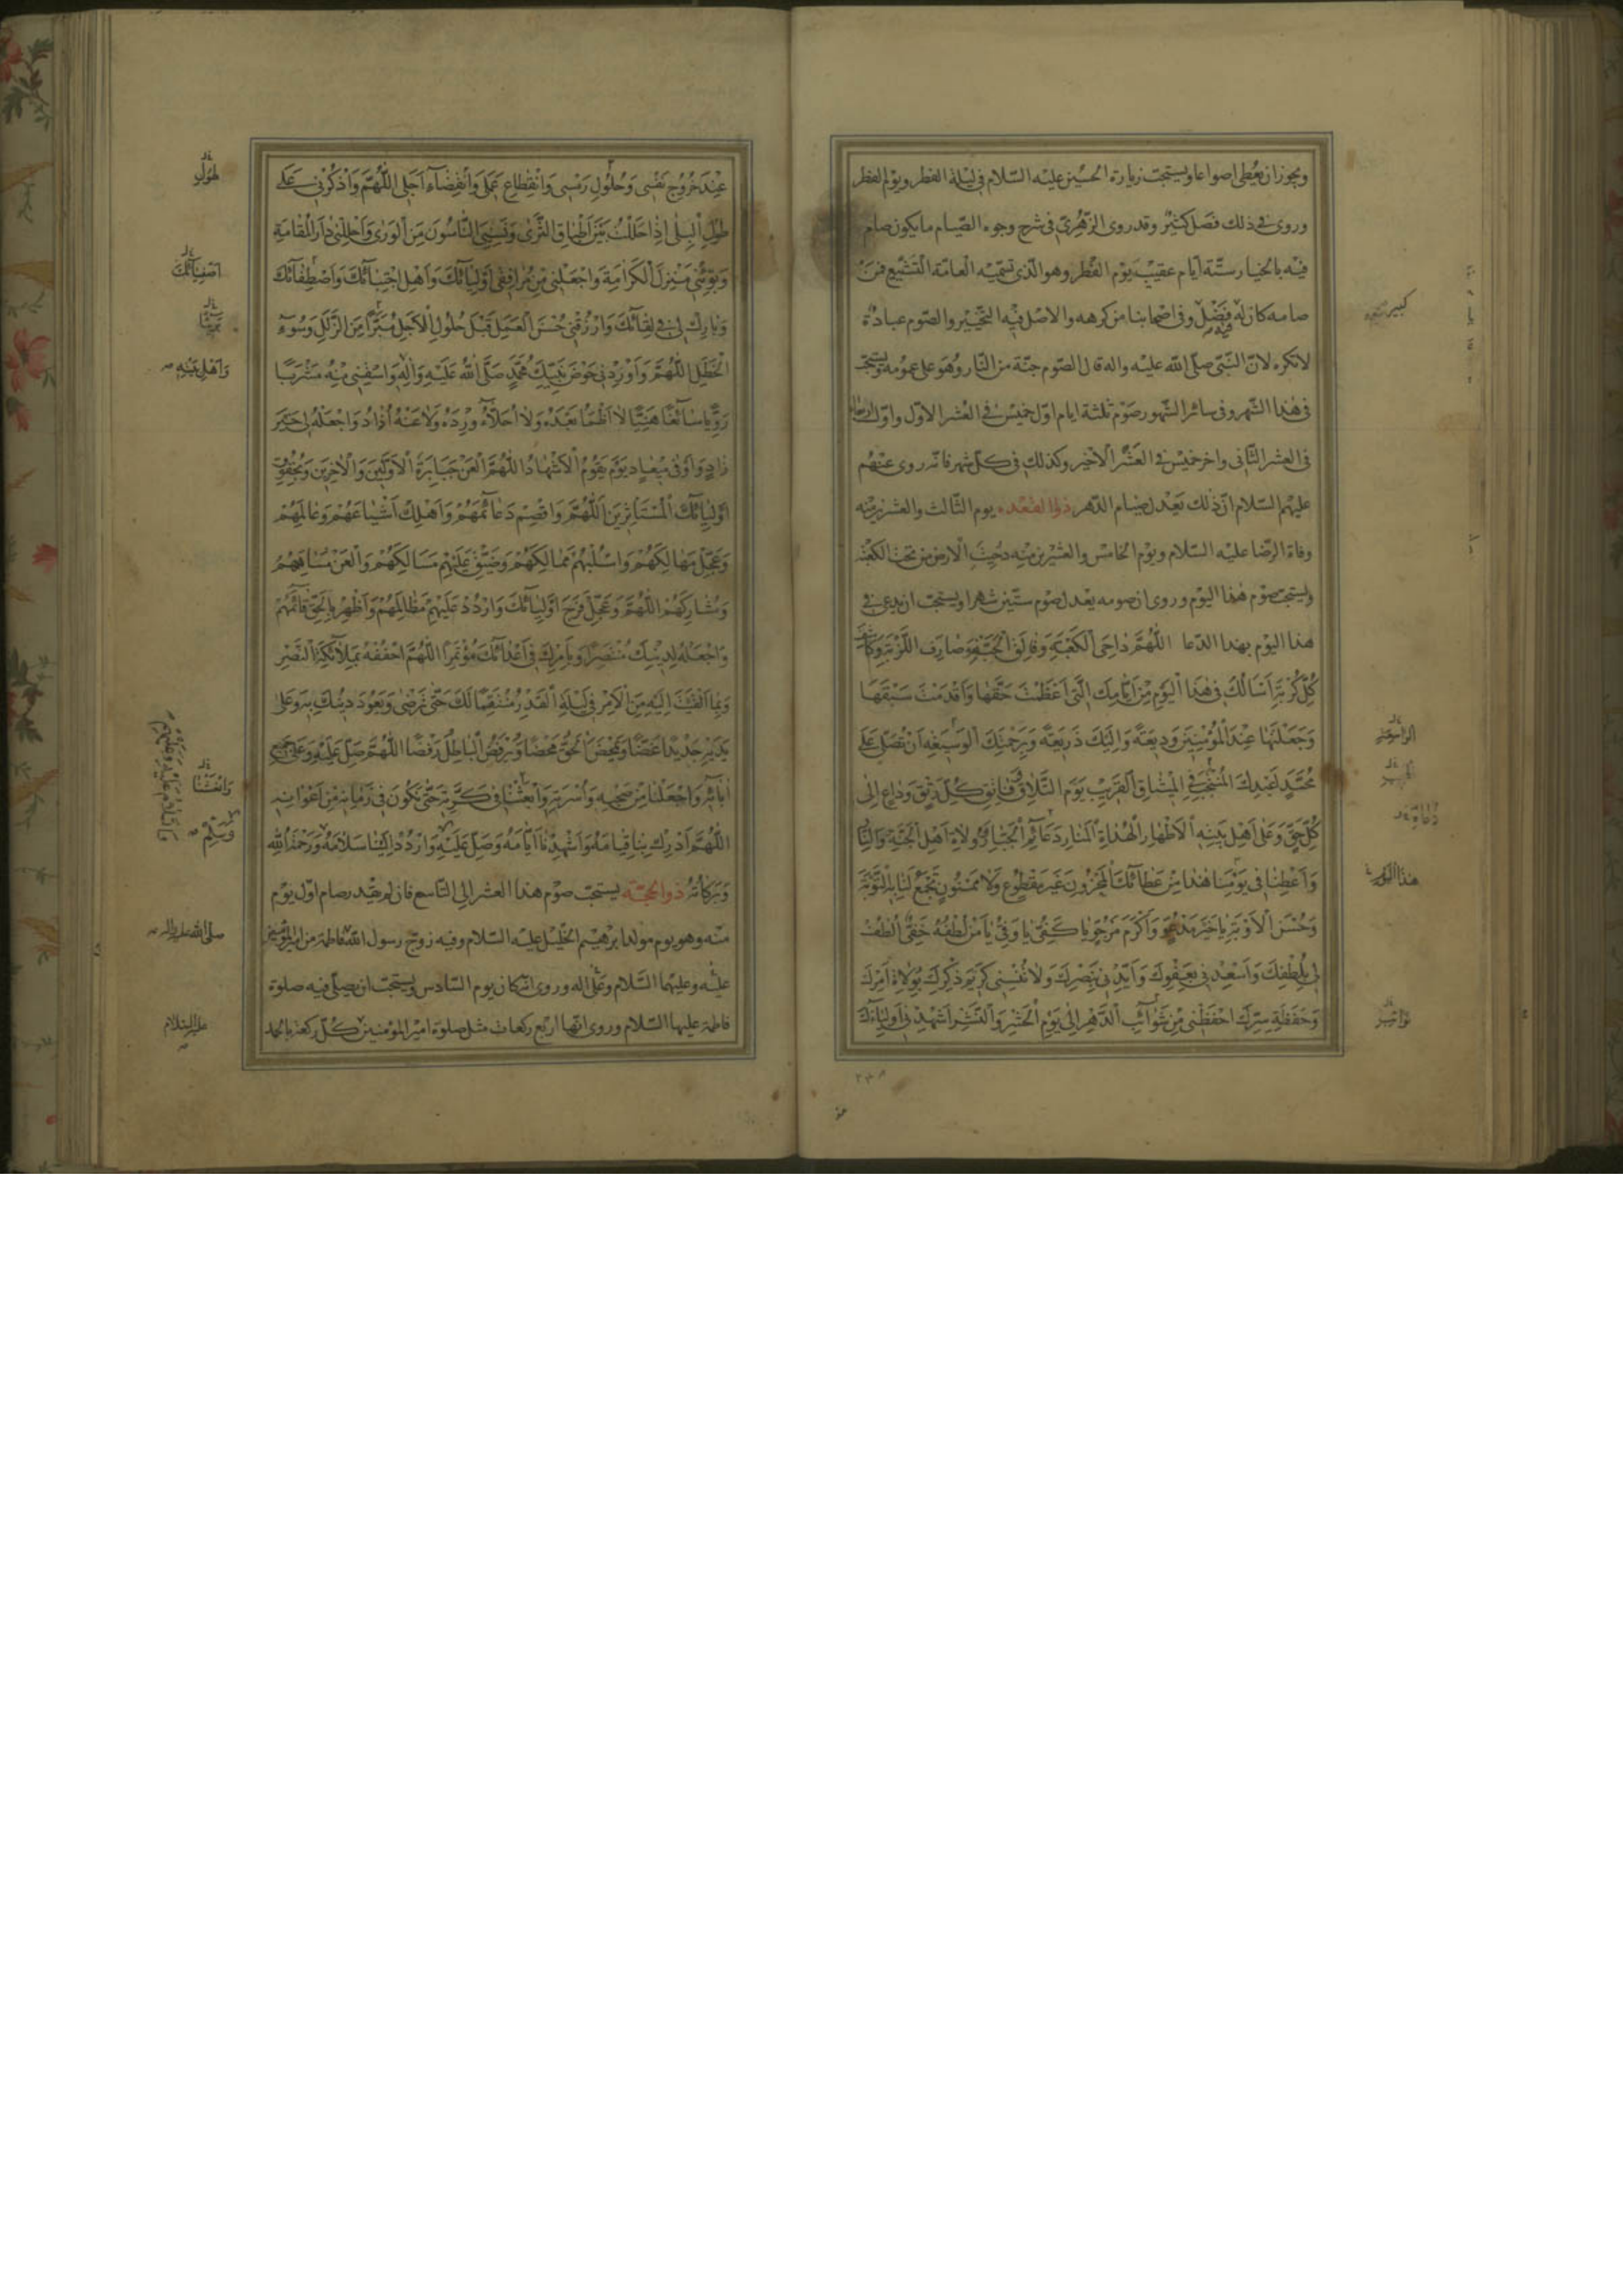 ويجوز ان يعطى اصواعا ويستحب زيارة الحسين عليه السلام في ليلة الفطر ويوم الفطر
وروى في ذلك فضل كثير وقد روى الزهرى في شرح وجوه الصيام ما يكون صامه
فيه بالخيار ستة ايام عقيب يوم الفطر وهو الذى تسميه العامة التشييع فمن
صامه كان له فضل وفى اصحابنا من كرهه والاصل فيه التخيير والصوم عبادة
لا تكره لان النبى صلى الله عليه واله قال الصوم جنة من النار وهو على عمومه ويستحب
فى هذا الشهر وفى سائر الشهور صوم ثلثة ايام اول خميس فى العشر الاول واول اربعاء
فى العشر الثانى واخر خميس فى العشر الاخير وكذلك فى كل شهر فانه روى عنهم
عليهم السلام ان ذلك يعدل صيام الدهر ذو القعدة يوم الثالث والعشرين منه
وفاة الرضا عليه السلام ويوم الخامس والعشرين منه دحيت الارض من تحت الكعبة
ويستحب صوم هذا اليوم وروى ان صومه يعدل صوم ستين شهرا ويستحب ان يدعى فى
هذا اليوم بهذا الدعا اللَّهُمَّ دَاحِىَ الْكَعْبَةِ وَفَالِقَ الْحَبَّةِ وَصَارِفَ اللَّزْبَةِ وَكَاشِفَ
كُلِّ كُرْبَةٍ اَسْاَلُكَ فِى هٰذَا الْيَوْمِ مِنْ اَيَّامِكَ الَّتِى اَعْظَمْتَ حَقَّهَا وَاَقْدَمْتَ سَبْقَهَا
وَجَعَلْتَهَا عِنْدَ الْمُؤْمِنِينَ وَدِيعَةً وَاِلَيْكَ ذَرِيعَةً وَبِرَحْمَتِكَ الْوَسِيعَةِ اَنْ تُصَلِّىَ عَلٰى
مُحَمَّدٍ عَبْدِكَ الْمُنْتَجَبِ فِى الْمِيثَاقِ الْقَرِيبِ يَوْمَ التَّلَاقِ فَاتِقِ كُلِّ رَتْقٍ وَدَاعٍ اِلٰى
كُلِّ حَقٍّ وَعَلٰى اَهْلِ بَيْتِهِ الْاَطْهَارِ الْهُدَاةِ الْمَنَارِ دَعَائِمِ الْجَبَّارِ وَوُلَاةِ اَهْلِ الْجَنَّةِ وَالنَّارِ
وَاَعْطِنَا فِى يَوْمِنَا هٰذَا مِنْ عَطَائِكَ الْمَخْزُونِ غَيْرَ مَقْطُوعٍ وَلَا مَمْنُونٍ تَجْمَعُ لَنَا بِهِ التَّوْبَةَ
وَحُسْنَ الْاَوْبَةِ يَا خَيْرَ مَدْعُوٍّ وَاَكْرَمَ مَرْجُوٍّ يَا كَفِىُّ يَا وَفِىُّ يَا مَنْ لُطْفُهُ خَفِىٌّ اُلْطُفْ
لِى بِلُطْفِكَ وَاَسْعِدْنِى بِعَفْوِكَ وَاَيِّدْنِى بِنَصْرِكَ وَلَا تُنْسِنِى كَرِيمَ ذِكْرِكَ بِوُلَاةِ اَمْرِكَ
وَحَفَظَةِ سِرِّكَ احْفَظْنِى مِنْ شَوَائِبِ الدَّهْرِ اِلٰى يَوْمِ الْحَشْرِ وَالنَّشْرِ اَشْهِدْنِى اَوْلِيَاءَكَ
الراحمين
هذا اليوم
عِنْدَ خُرُوجِ نَفْسِى وَحُلُولِ رَمْسِى وَانْقِطَاعِ عَمَلِى وَانْقِضَاءِ اَجَلِى اللَّهُمَّ وَاذْكُرْنِى عَلٰى
طُولِ الْبِلٰى اِذَا حَلَلْتُ بَيْنَ اَطْبَاقِ الثَّرٰى وَنَسِيَنِى النَّاسُونَ مِنَ الْوَرٰى وَاَحْلِلْنِى دَارَ الْمُقَامَةِ
وَبَوِّئْنِى مَنْزِلَ الْكَرَامَةِ وَاجْعَلْنِى مِنْ مُرَافِقِى اَوْلِيَائِكَ وَاَهْلِ اجْتِبَائِكَ وَاصْطِفَائِكَ
وَبَارِكْ لِى فِى لِقَائِكَ وَارْزُقْنِى حُسْنَ الْعَمَلِ قَبْلَ حُلُولِ الْاَجَلِ مُبَرَّأً مِنَ الزَّلَلِ وَسُوءِ
الْخَطَلِ اللَّهُمَّ وَاَوْرِدْنِى حَوْضَ نَبِيِّكَ مُحَمَّدٍ صَلَّى اللّٰهُ عَلَيْهِ وَاٰلِهِ وَاسْقِنِى مِنْهُ مَشْرَبًا
رَوِيًّا سَائِغًا هَنِيئًا لَا اَظْمَأُ بَعْدَهُ وَلَا اُحَلَّأُ وِرْدَهُ وَلَا عَنْهُ اُذَادُ وَاجْعَلْهُ لِى خَيْرَ
زَادٍ وَاَوْفٰى مِيعَادٍ يَوْمَ يَقُومُ الْاَشْهَادُ اللَّهُمَّ الْعَنْ جَبَابِرَةَ الْاَوَّلِينَ وَالْاٰخِرِينَ وَبِحُقُوقِ
اَوْلِيَائِكَ الْمُسْتَاْثِرِينَ اللَّهُمَّ وَاقْصِمْ دَعَائِمَهُمْ وَاَهْلِكْ اَشْيَاعَهُمْ وَعَالَمَهُمْ
وَعَجِّلْ مَهَالِكَهُمْ وَاسْلُبْهُمْ مَمَالِكَهُمْ وَضَيِّقْ عَلَيْهِمْ مَسَالِكَهُمْ وَالْعَنْ مُسَاهِمَهُمْ
وَمُشَارِكَهُمْ اللَّهُمَّ وَعَجِّلْ فَرَجَ اَوْلِيَائِكَ وَارْدُدْ عَلَيْهِمْ مَظَالِمَهُمْ وَاَظْهِرْ بِالْحَقِّ قَائِمَهُمْ
وَاجْعَلْهُ لِدِينِكَ مُنْتَصِرًا وَبِاَمْرِكَ فِى اَعْدَائِكَ مُؤْتَمِرًا اللَّهُمَّ احْفُفْهُ بِمَلَائِكَةِ النَّصْرِ
وَبِمَا اَلْقَيْتَ اِلَيْهِ مِنَ الْاَمْرِ فِى لَيْلَةِ الْقَدْرِ مُنْتَقِمًا لَكَ حَتّٰى تَرْضٰى وَيَعُودَ دِينُكَ بِهِ وَعَلٰى
يَدَيْهِ جَدِيدًا غَضًّا وَيَمْحَضَ الْحَقَّ مَحْضًا وَيَرْفُضَ الْبَاطِلَ رَفْضًا اللَّهُمَّ صَلِّ عَلَيْهِ وَعَلٰى جَمِيعِ
اٰبَائِهِ وَاجْعَلْنَا مِنْ صَحْبِهِ وَاُسْرَتِهِ وَابْعَثْنَا فِى كَرَّتِهِ حَتّٰى نَكُونَ فِى زَمَانِهِ مِنْ اَعْوَانِهِ
اللَّهُمَّ اَدْرِكْ بِنَا قِيَامَهُ وَاَشْهِدْنَا اَيَّامَهُ وَصَلِّ عَلَيْهِ وَارْدُدْ اِلَيْنَا سَلَامَهُ وَرَحْمَةُ اللّٰهِ
وَبَرَكَاتُهُ ذو الحجة يستحب صوم هذا العشر الى التاسع فان لم يقدر صام اول يوم
منه وهو يوم مولد ابرهيم الخليل عليه السلام وفيه زوج رسول الله فاطمة من امير المؤمنين
عليه وعليهما السلام وعلى اله وروى انه كان يوم السادس ويستحب ان يصلى فيه صلوة
فاطمة عليها السلام وروى انها اربع ركعات مثل صلوة امير المؤمنين كل ركعة بالحمد
طُولِ
اَصْفِيَائِكَ
وَاَهْلِ بَيْتِهِ
وَسَلِّمْ
صلى الله عليه واله
عليه السلام